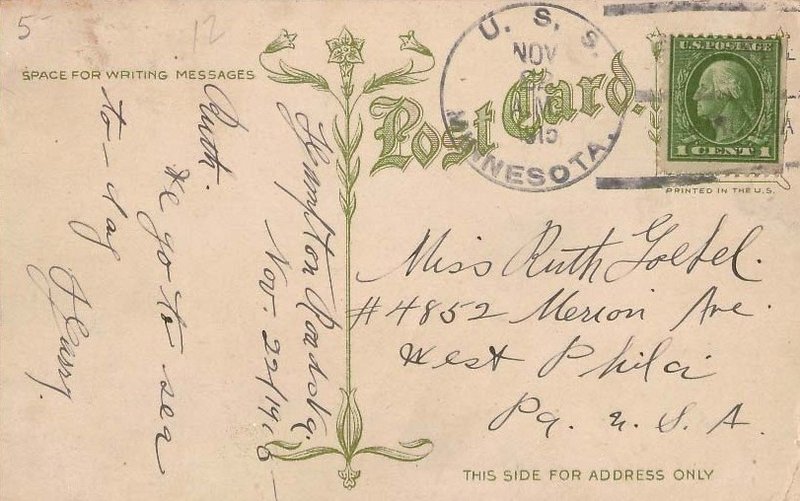 5 12
SPACE FOR WRITING MESSAGES
Post Card.
U. S. S.
NOV
22
A.M.
MINNESOTA.
U.S. POSTAGE
1 CENT 1
PRINTED IN THE U.S.
Hampton Roads Va.
Nov. 22/1916
Ruth.
We go to sea
to-day
Harry.
Miss Ruth Goebel.
#4852 Merion Ave.
West Phila
Pa. U.S.A.
THIS SIDE FOR ADDRESS ONLY